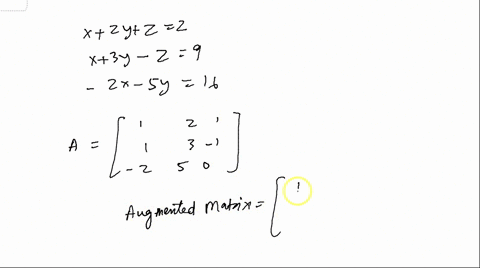 x+2y+z=2
x+3y-z=9
-2x-5y=16
A = [ 1 2 1
1 3 -1
-2 5 0 ]
Augmented Matrix = [ 1